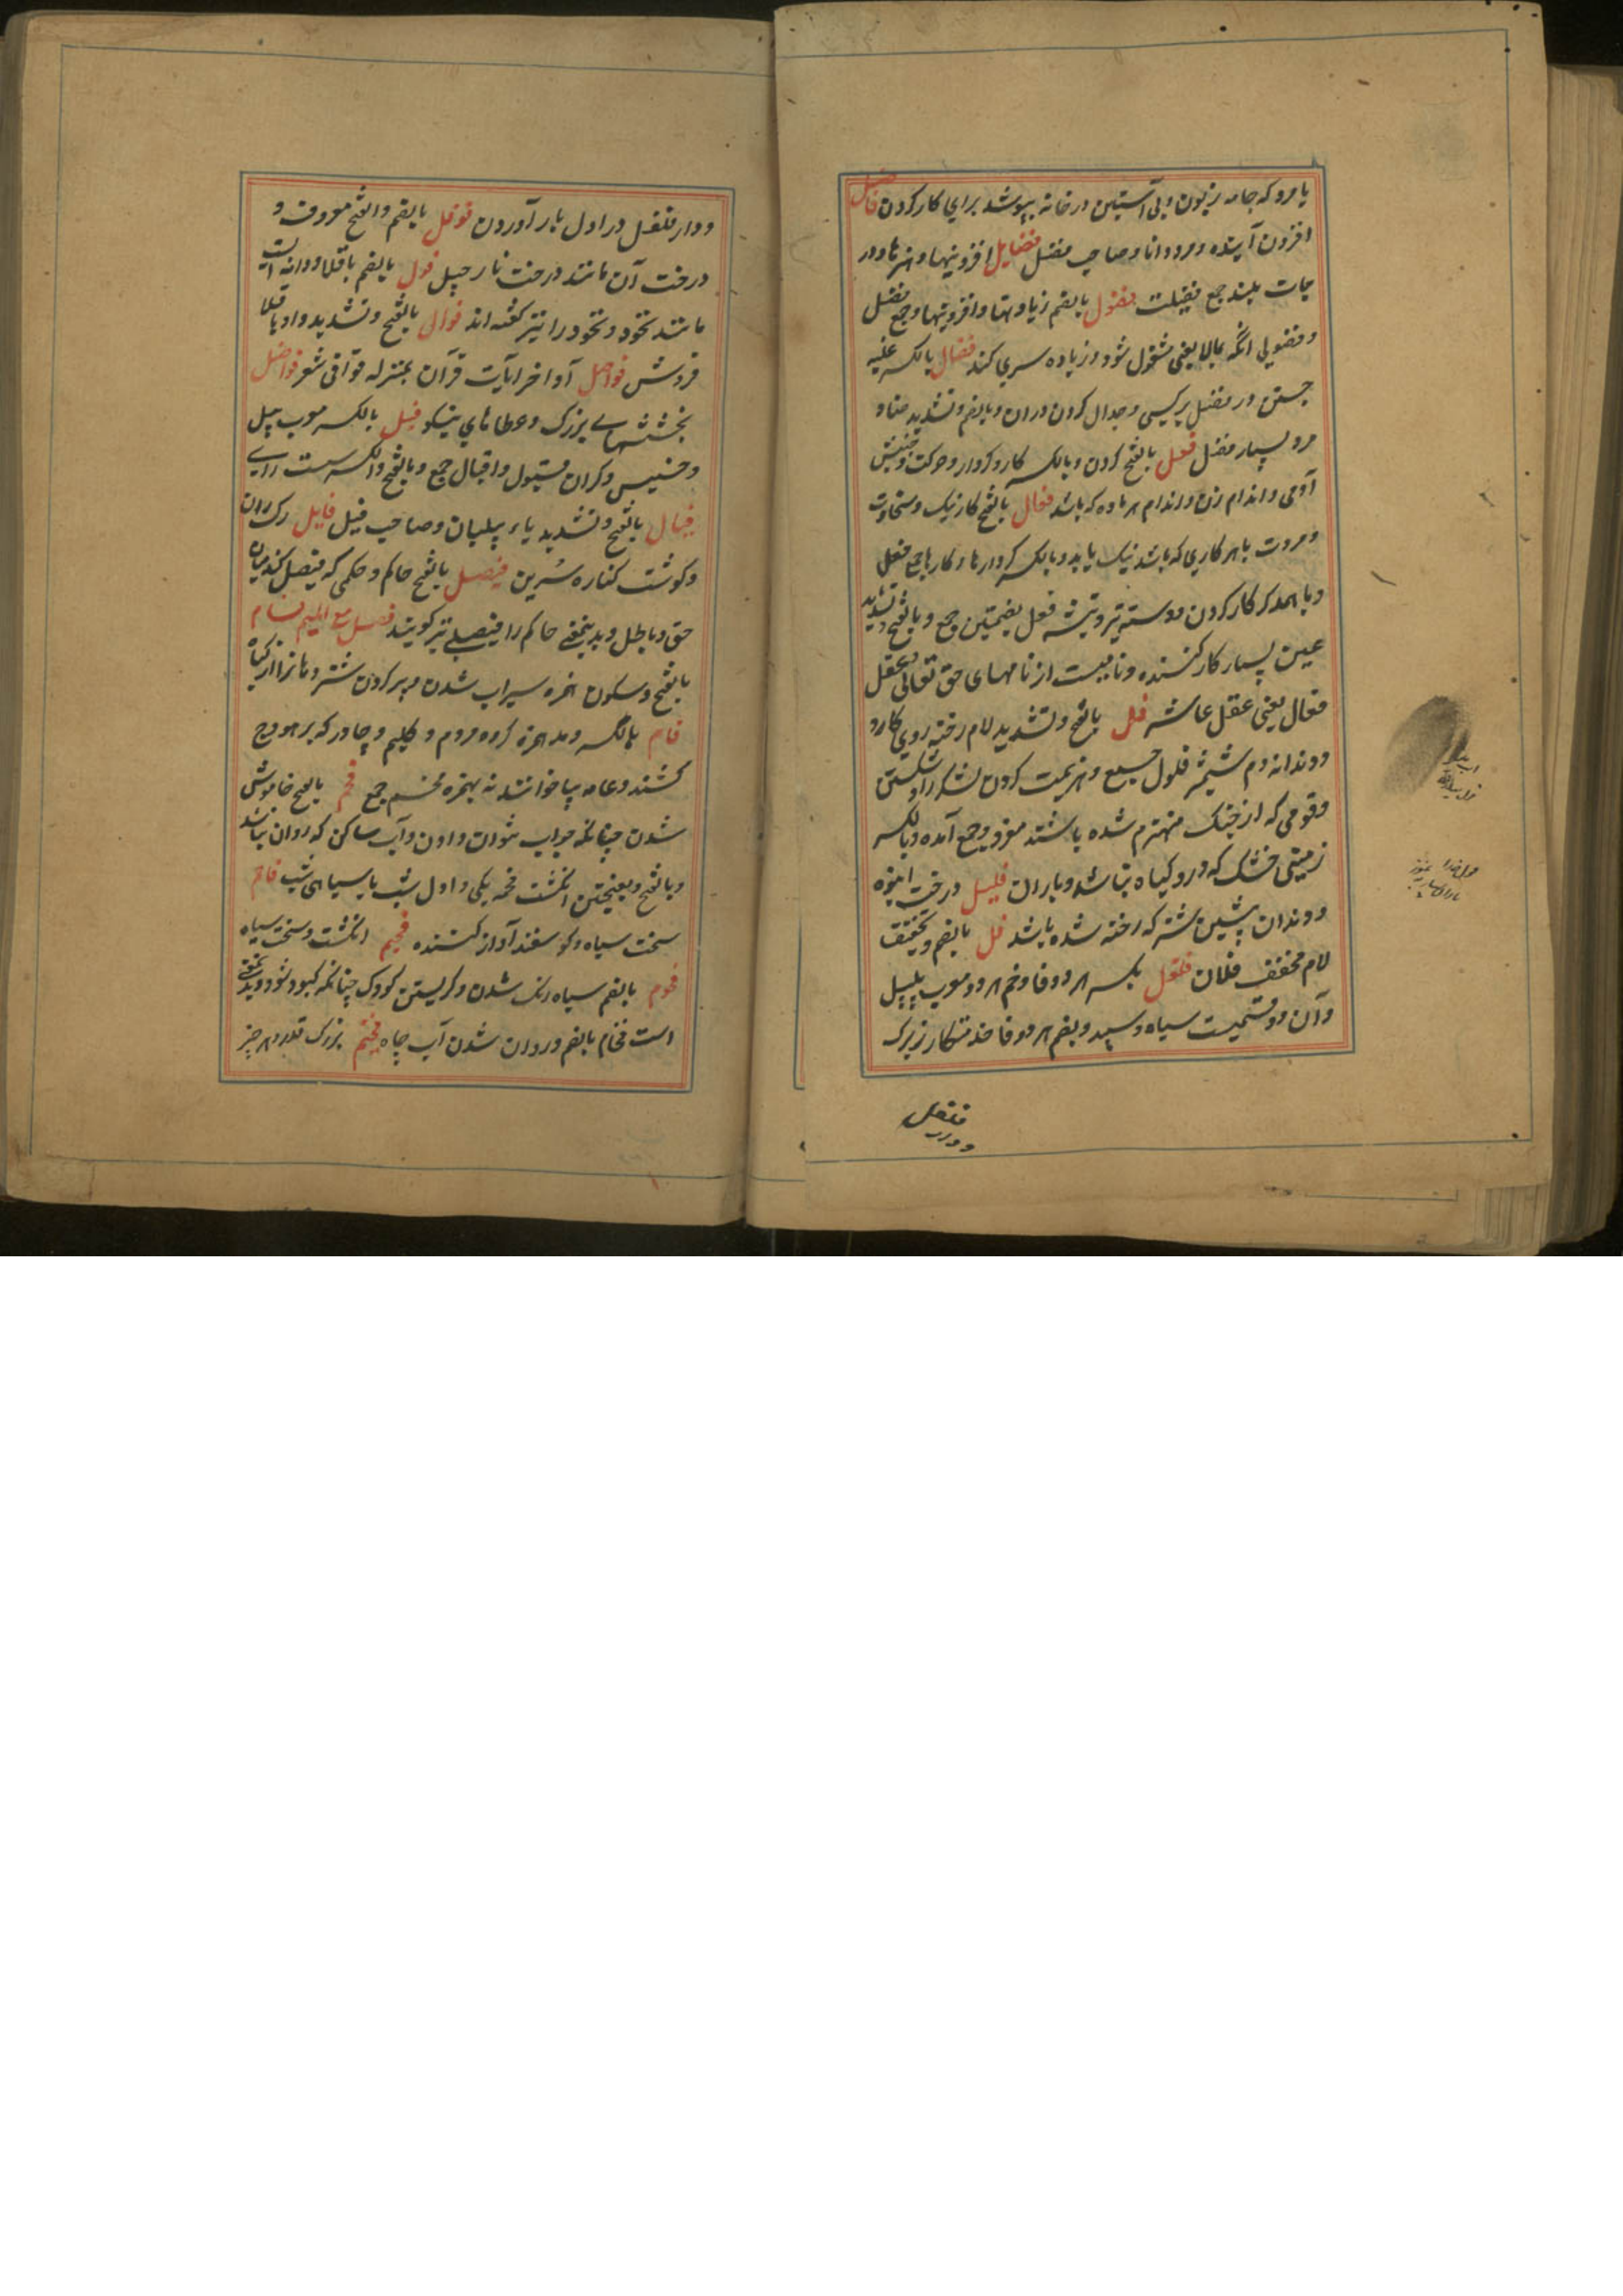 یا مرو که جامه زبون و بی آستین در خانه بپوشد برای کار کردن فاضل
افزون آینده و مرد دانا و صاحب فضل فضایل افزونیها و هنرها و در
جات بلند جمع فضیلت فضول بالضم زیادتها و افزونیها و جمع فضل
و فضولی آنکه بمالایعنی مشغول شود و زیاده سری کند فضال بالکسر غلبه
جستن در فضل برکسی و جدال کردن دران و بالضم و تشدید ضاد
مرد بسیار فضل فعل بالفتح کردن و بالکسر کار و کردار و حرکت و جنبش
آدمی و اندام زن و اندام هر ماده که باشد فعال بالفتح کار نیک و سخاوت
و مروت یا هر کاری که باشد نیک یا بد و بالکسر کردارها و کارها جمع فعل
و با همدکر کار کردن و دسته تبر و تیشه فعل بضمتین جمع و بالفتح و تشدید
عین بسیار کار کننده و نامیست از نامهای حق تعالی و عقل
فعال یعنی عقل عاشر فل بالفتح و تشدید لام رخنه روی کارد
و دندانه دم شمشیر فلول جمع و هزیمت کردن لشکر را و شکستن
و قومی که از جنک منهزم شده باشند مفرد و جمع آمده و بالکسر
زمینی خشک که درو کیاه نباشد و باران فلیل درخت انبوه
و دندان پیشین شتر که رخنه شده باشد فل بالضم و تخفیف
لام مخفف فلان فلفل بکسر هر دو فا و ضم هر دو معرب پلپل
و آن دو قسمیست سیاه و سپید و بضم هر دو فا خدمتکار زیرک
فلفل
و دار
و دار فلفل در اول بار آوردن فوفل بالضم و الفتح معروف و
درخت آن مانند درخت نارجیل فول بالضم باقلا و دانه ایست
مانند نخود و نخود را نیز کفته اند فوال بالفتح و تشدید واو باقلا
فروش فواصل اواخر آیات قرآن بمنزله قوافی شعر فواضل
بخششهای بزرک و عطاهای نیکو فیل بالکسر معرب پیل
و خسیس و کران فیول و افیال جمع و بالفتح و الکسر سست رای
فیال بالفتح و تشدید یاء پیلبان و صاحب فیل فایل رک ران
و کوشت کناره سرین فیصل بالفتح حاکم و حکمی که فیصل کند میان
حق و باطل و بدینمعنی حاکم را فیصلی نیز کویند فصل مع المیم فام
بالفتح و سکون همزه سیراب شدن و پر کردن شتر دهانرا از کیاه
فام بالکسر و مد همزه کروه مردم و کلیم و چادر که بر هودج
کشند و عامه بیا خوانند نه بهمزه فئم جمع فحم بالفتح خاموش
شدن چنانکه جواب نتوان دادن و آب ساکن که روان نباشد
و بالفتح و بفتحتین انکشت فحمه یکی و اول شب یا سیاهی شب فاحم
سخت سیاه و کوسفند آواز کننده فحیم انکشت و سخت سیاه
فحوم بالضم سیاه رنک شدن و کریستن کودک چنانکه کبود شود و بدینمعنی
است فحام بالضم و روان شدن آب چاه فخم بزرک قدر و هر چیز